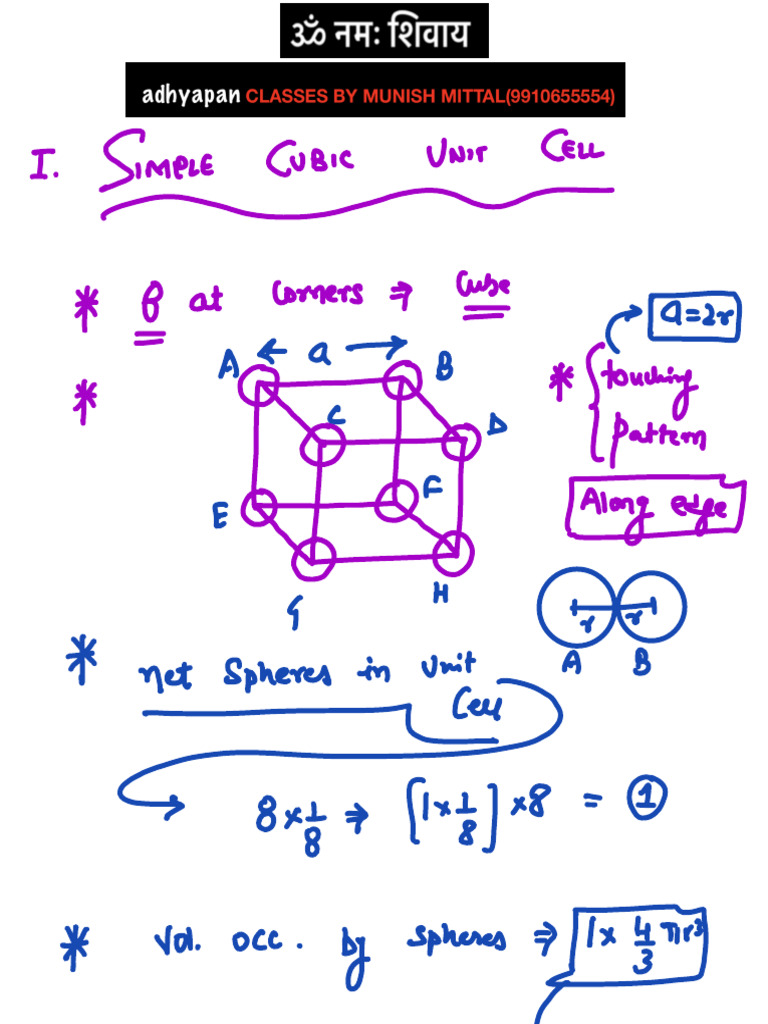 ॐ नमः शिवाय
adhyapan CLASSES BY MUNISH MITTAL(9910655554)
I. SIMPLE CUBIC UNIT CELL
* at corners ⇒ Cube
a = 2r
A ← a → B
* touching
pattern
C D
Along edge
E F
G H
r r
A B
* net spheres in unit
Cell
8 × 1/8 ⇒ [1 × 1/8] × 8 = 1
* Vol. occ. by spheres ⇒ 1 × 4/3 πr³